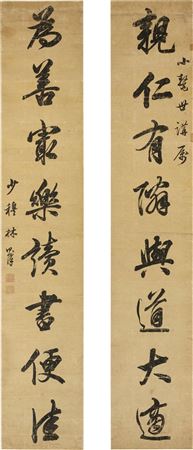 親仁有鄰與道大適
小鰲世講屬
為善最樂讀書便佳
少穆林則徐